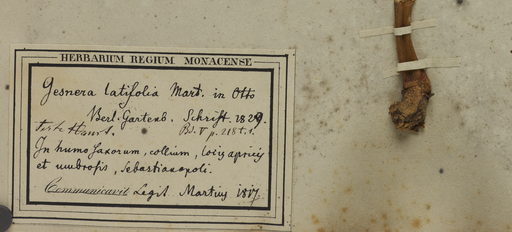 HERBARIUM REGIUM MONACENSE
Gesnera latifolia Mart. in Otto
Berl. Gartenb. Schrift. 1829.
teste Hanst. Bd. V p. 218 t. 1.
In humo saxorum, collium, locis apricis
et umbrosis, Sebastianopoli.
Communicavit Legit Martius 1817